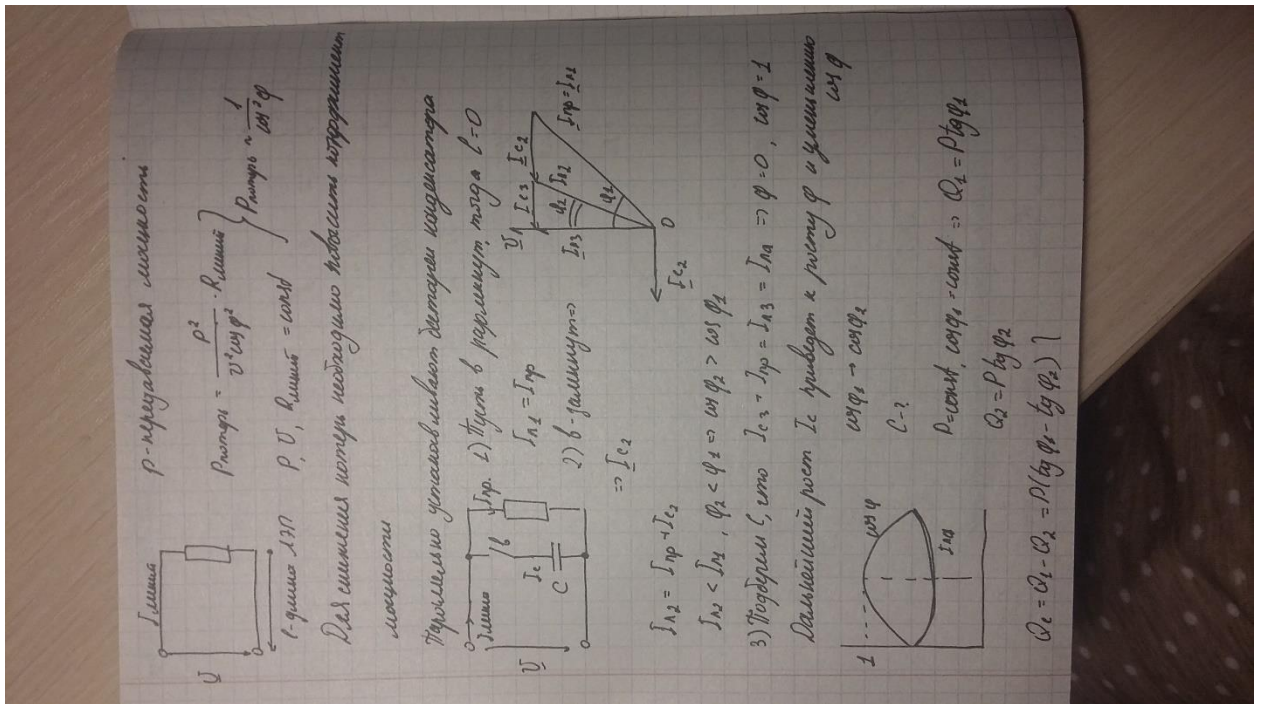 Iлиний
U
l-длина ЛЭП
P-передаваемая мощность
Pпотерь = P² / U²cosφ² · Rлиний
P, U, Rлиний = const
Pпотерь ≈ 1 / cos²φ
Для снижения потерь необходимо повысить коэффициент
мощности
Параллельно устанавливают батареи конденсатора
Iлиния
Iпр.
U
Ic
B
C
1) Пусть B разомкнут, тогда
Iл1 = Iпр
2) B-замкнут=>
=> Ic2
U
Ic3
Ic2
Iл3
φ2
Iл2
φ2
Iпр=Iл1
0
Ic2
Iл2 = Iпр+Ic2
Iл2 < Iл1, φ2 < φ1 => cosφ2 > cosφ1
3) Подберем C, что Ic3 - Iпр = Iл3 = Iла => φ=0, cosφ=1
Дальнейший рост Ic приведет к росту φ и уменьшению
cosφ
1
cosφ
cosφ1 → cosφ2
C-?
P=const, cosφ1=const => Q1 = Ptgφ1
Q2 = Ptgφ2
Qc = Q1 - Q2 = P(tgφ1 - tgφ2)